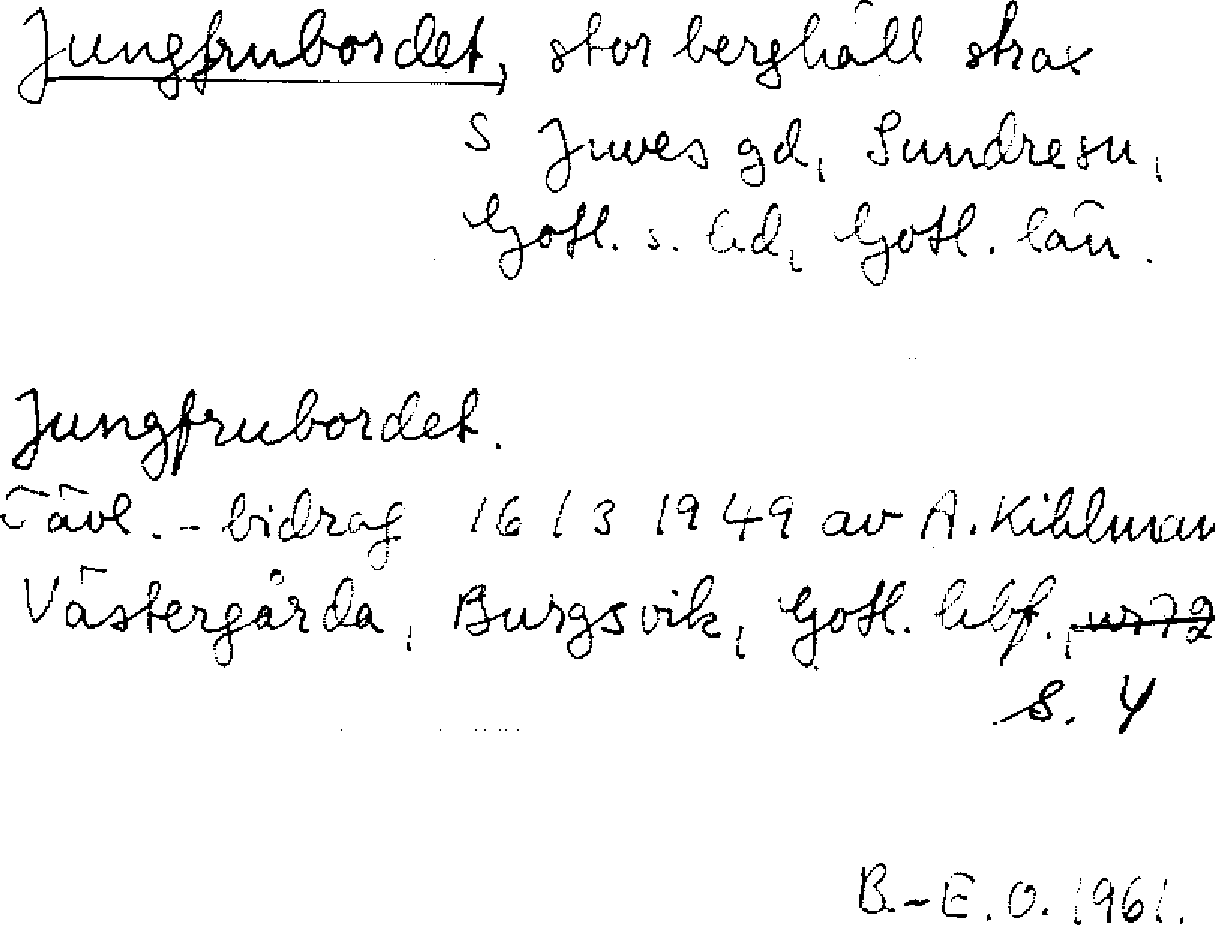 Jungfrubordet, stor berghäll strax
S Juves gd, Sundresn,
Gotl. s. hd, Gotl. län.
Jungfrubordet.
Tävl.-bidrag 16/3 1949 av A. Kihlman
Västergårda, Burgsvik, Gotl. hbf., nr 72
s. 4
B.-E. O. 1961.